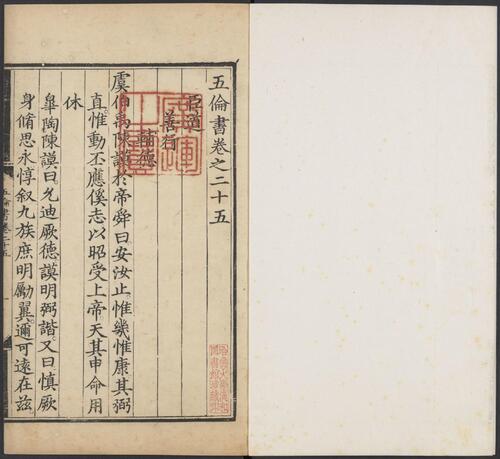 五倫書卷之二十五
臣道
善行
輔德
虞伯禹陳謨於帝舜曰安汝止惟幾惟康其弼
直惟動丕應徯志以昭受上帝天其申命用
休
皐陶陳謨曰允迪厥德謨明弼諧又曰慎厥
身脩思永惇叙九族庶明勵翼邇可遠在兹
五倫書卷二十五